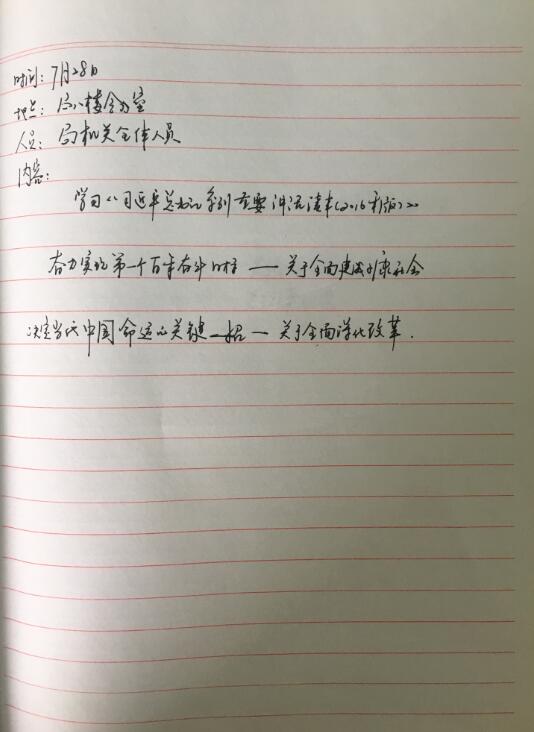 时间：7月28日
地点：局八楼会办室
人员：局机关全体人员
内容：
学习《习近平总书记系列重要讲话读本(2016年版)》
奋力实现第一个百年奋斗目标——关于全面建成小康社会
决定当代中国命运的关键一招—关于全面深化改革.